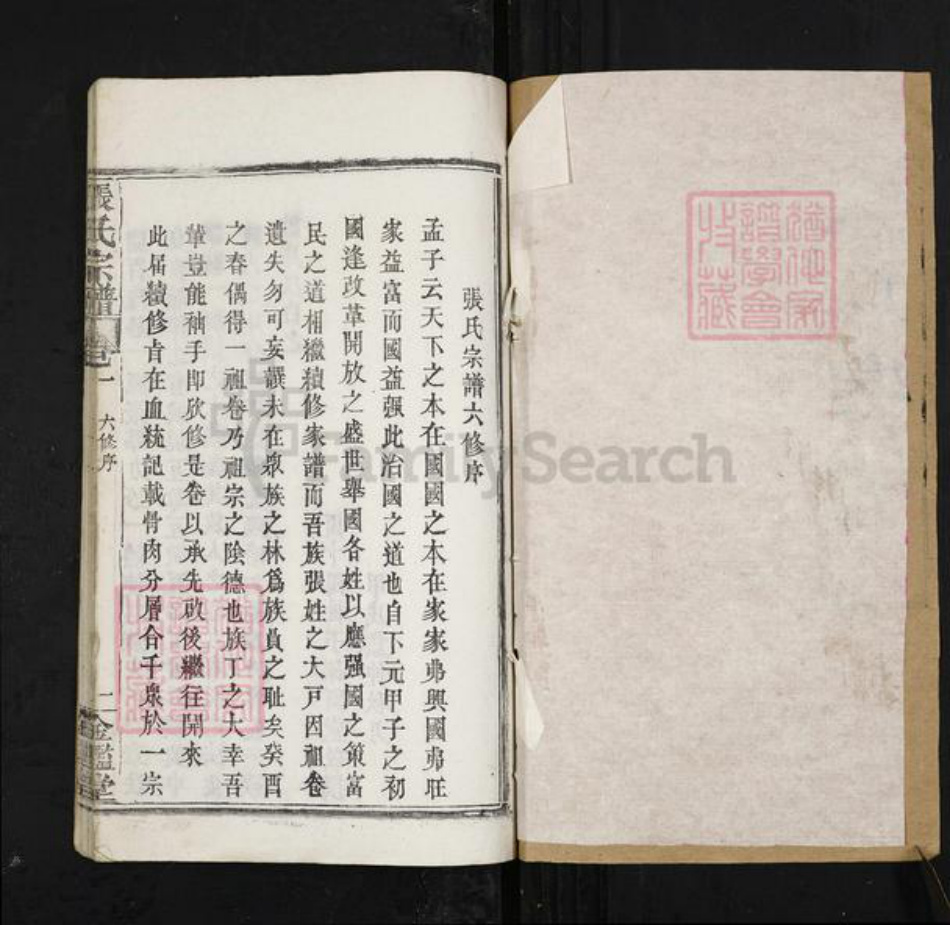 張氏宗譜六修序
孟子云天下之本在國國之本在家家弗興國弗旺
家益富而國益强此治國之道也自下元甲子之初
國逢改革開放之盛世舉國各姓以應强國之策富
民之道相繼續修家譜而吾族張姓之大戸因祖卷
遺失勿可妄譔未在衆族之林爲族員之耻矣癸酉
之春偶得一祖卷乃祖宗之陰德也族丁之大幸吾
輩豈能袖手即欣修是卷以承先啟後繼往開來
此届續修肯在血統記載骨肉分層合千衆於一宗
張氏宗譜
卷一
六修序
一
金鑑堂
譜學會
收藏
FamilySearch